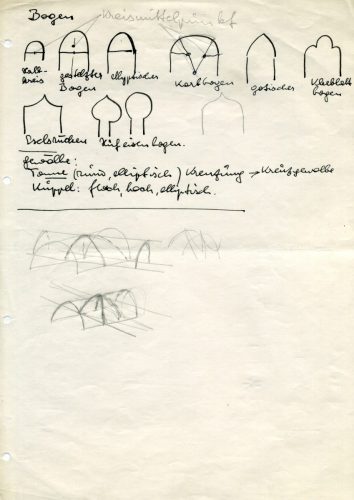 Bogen Kreismittelpunkt
Halb- gestelzter elliptischer Korbbogen gotischer Kleeblatt
kreis Bogen bogen
Eselsrücken Hufeisenbogen.
Gewölbe:
Tonne (rund, elliptisch) Kreuzung → Kreuzgewölbe
Kuppel: flach, hoch, elliptisch.